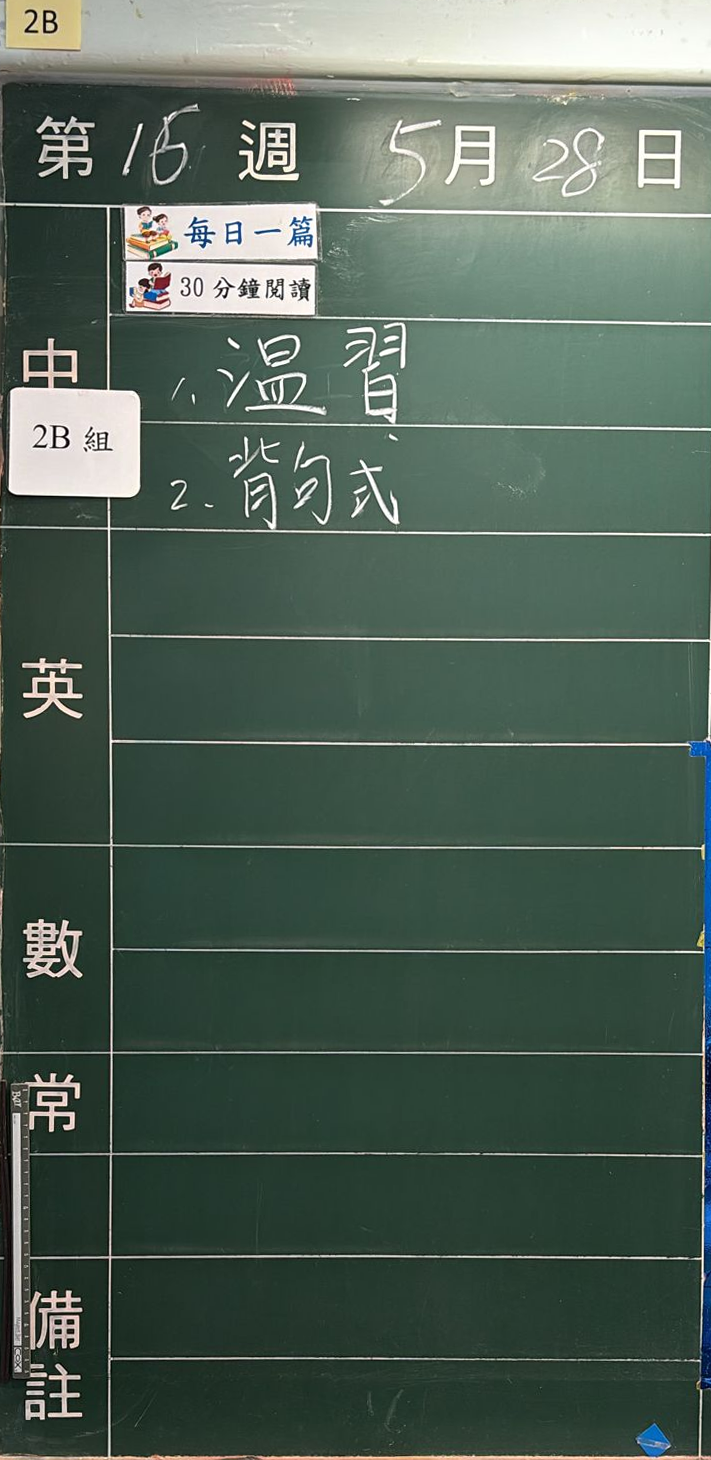 2B
第 15 週 5月 28 日
每日一篇
30 分鐘閱讀
中
1. 温習
2B 組
2. 背句式
英
數
常
備註